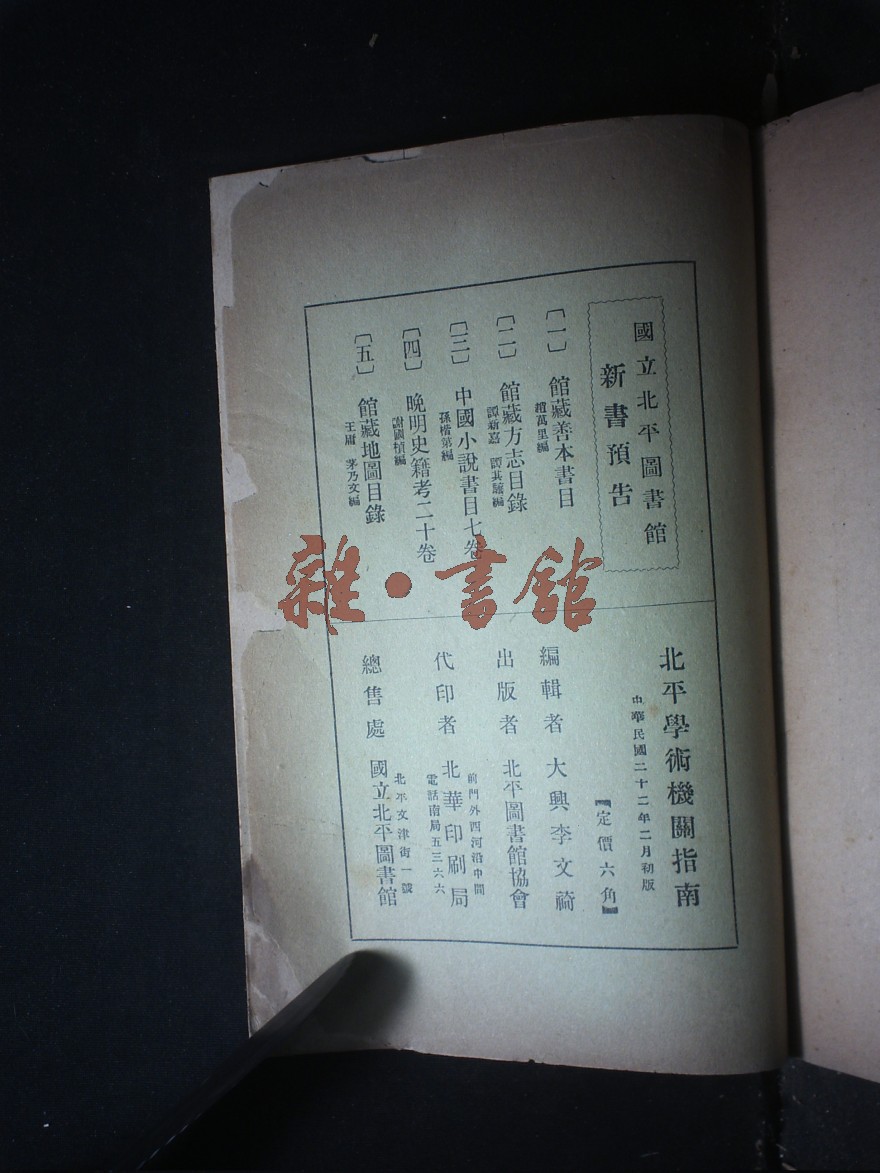 國立北平圖書館
新書預告
〔一〕 館藏善本書目
趙萬里編
〔二〕 館藏方志目錄
譚新嘉 譚其驤編
〔三〕 中國小說書目七卷
孫楷第編
〔四〕 晚明史籍考二十卷
謝國楨編
〔五〕 館藏地圖目錄
王庸 茅乃文編
北平學術機關指南
中華民國二十二年二月初版
【定價六角】
編輯者 大興李文䄎
出版者 北平圖書館協會
代印者 北華印刷局
前門外西河沿中間
電話南局五三六六
總售處 國立北平圖書館
北平文津街一號
雜·書館